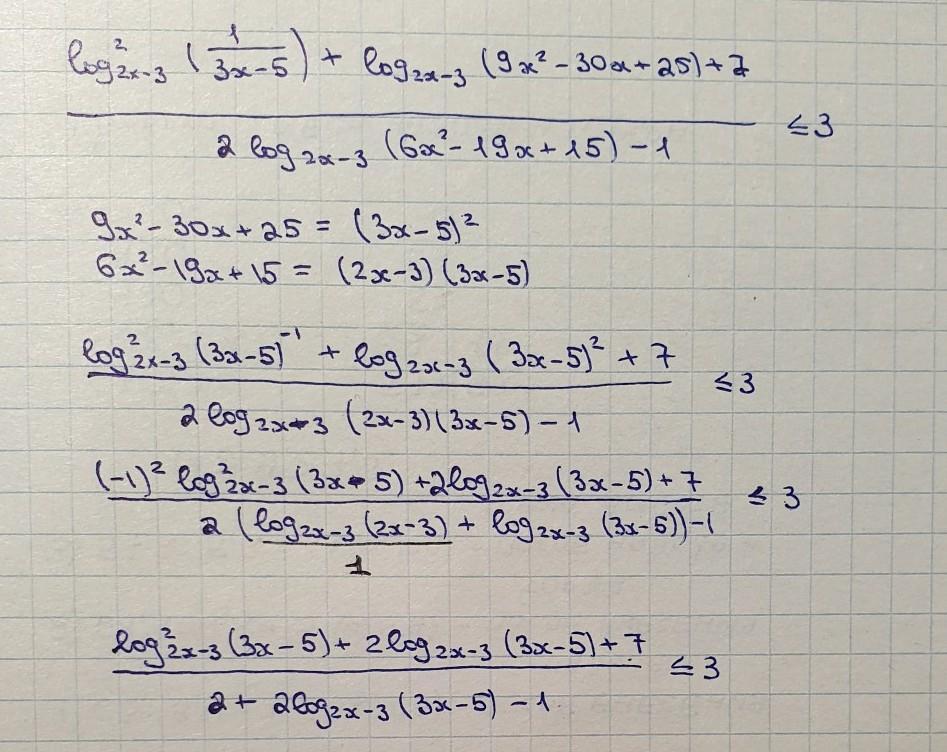 log²₂ₓ₋₃ (1/(3x-5)) + log₂ₓ₋₃ (9x² - 30x + 25) + 7
≤ 3
2 log₂ₓ₋₃ (6x² - 19x + 15) - 1
9x² - 30x + 25 = (3x - 5)²
6x² - 19x + 15 = (2x - 3)(3x - 5)
log²₂ₓ₋₃ (3x - 5)⁻¹ + log₂ₓ₋₃ (3x - 5)² + 7
≤ 3
2 log₂ₓ₋₃ (2x - 3)(3x - 5) - 1
(-1)² log²₂ₓ₋₃ (3x - 5) + 2log₂ₓ₋₃ (3x - 5) + 7
≤ 3
2 (log₂ₓ₋₃ (2x - 3) + log₂ₓ₋₃ (3x - 5)) - 1
1
log²₂ₓ₋₃ (3x - 5) + 2log₂ₓ₋₃ (3x - 5) + 7
≤ 3
2 + 2log₂ₓ₋₃ (3x - 5) - 1